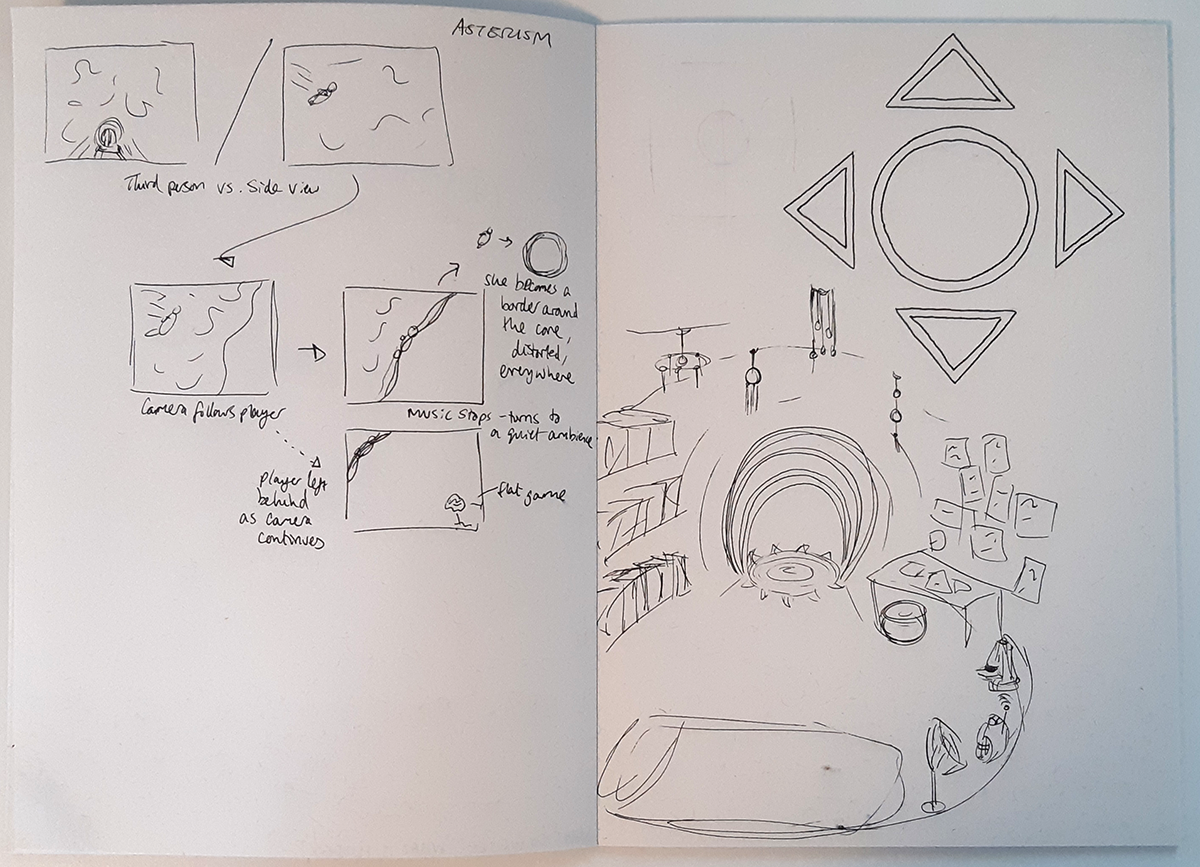 ASTERISM
Third person vs. Side view
she becomes a
border around
the core,
distorted,
everywhere
Camera follows player
Music stops - turns to
a quiet ambience
player left
behind
as camera
continues
flat game